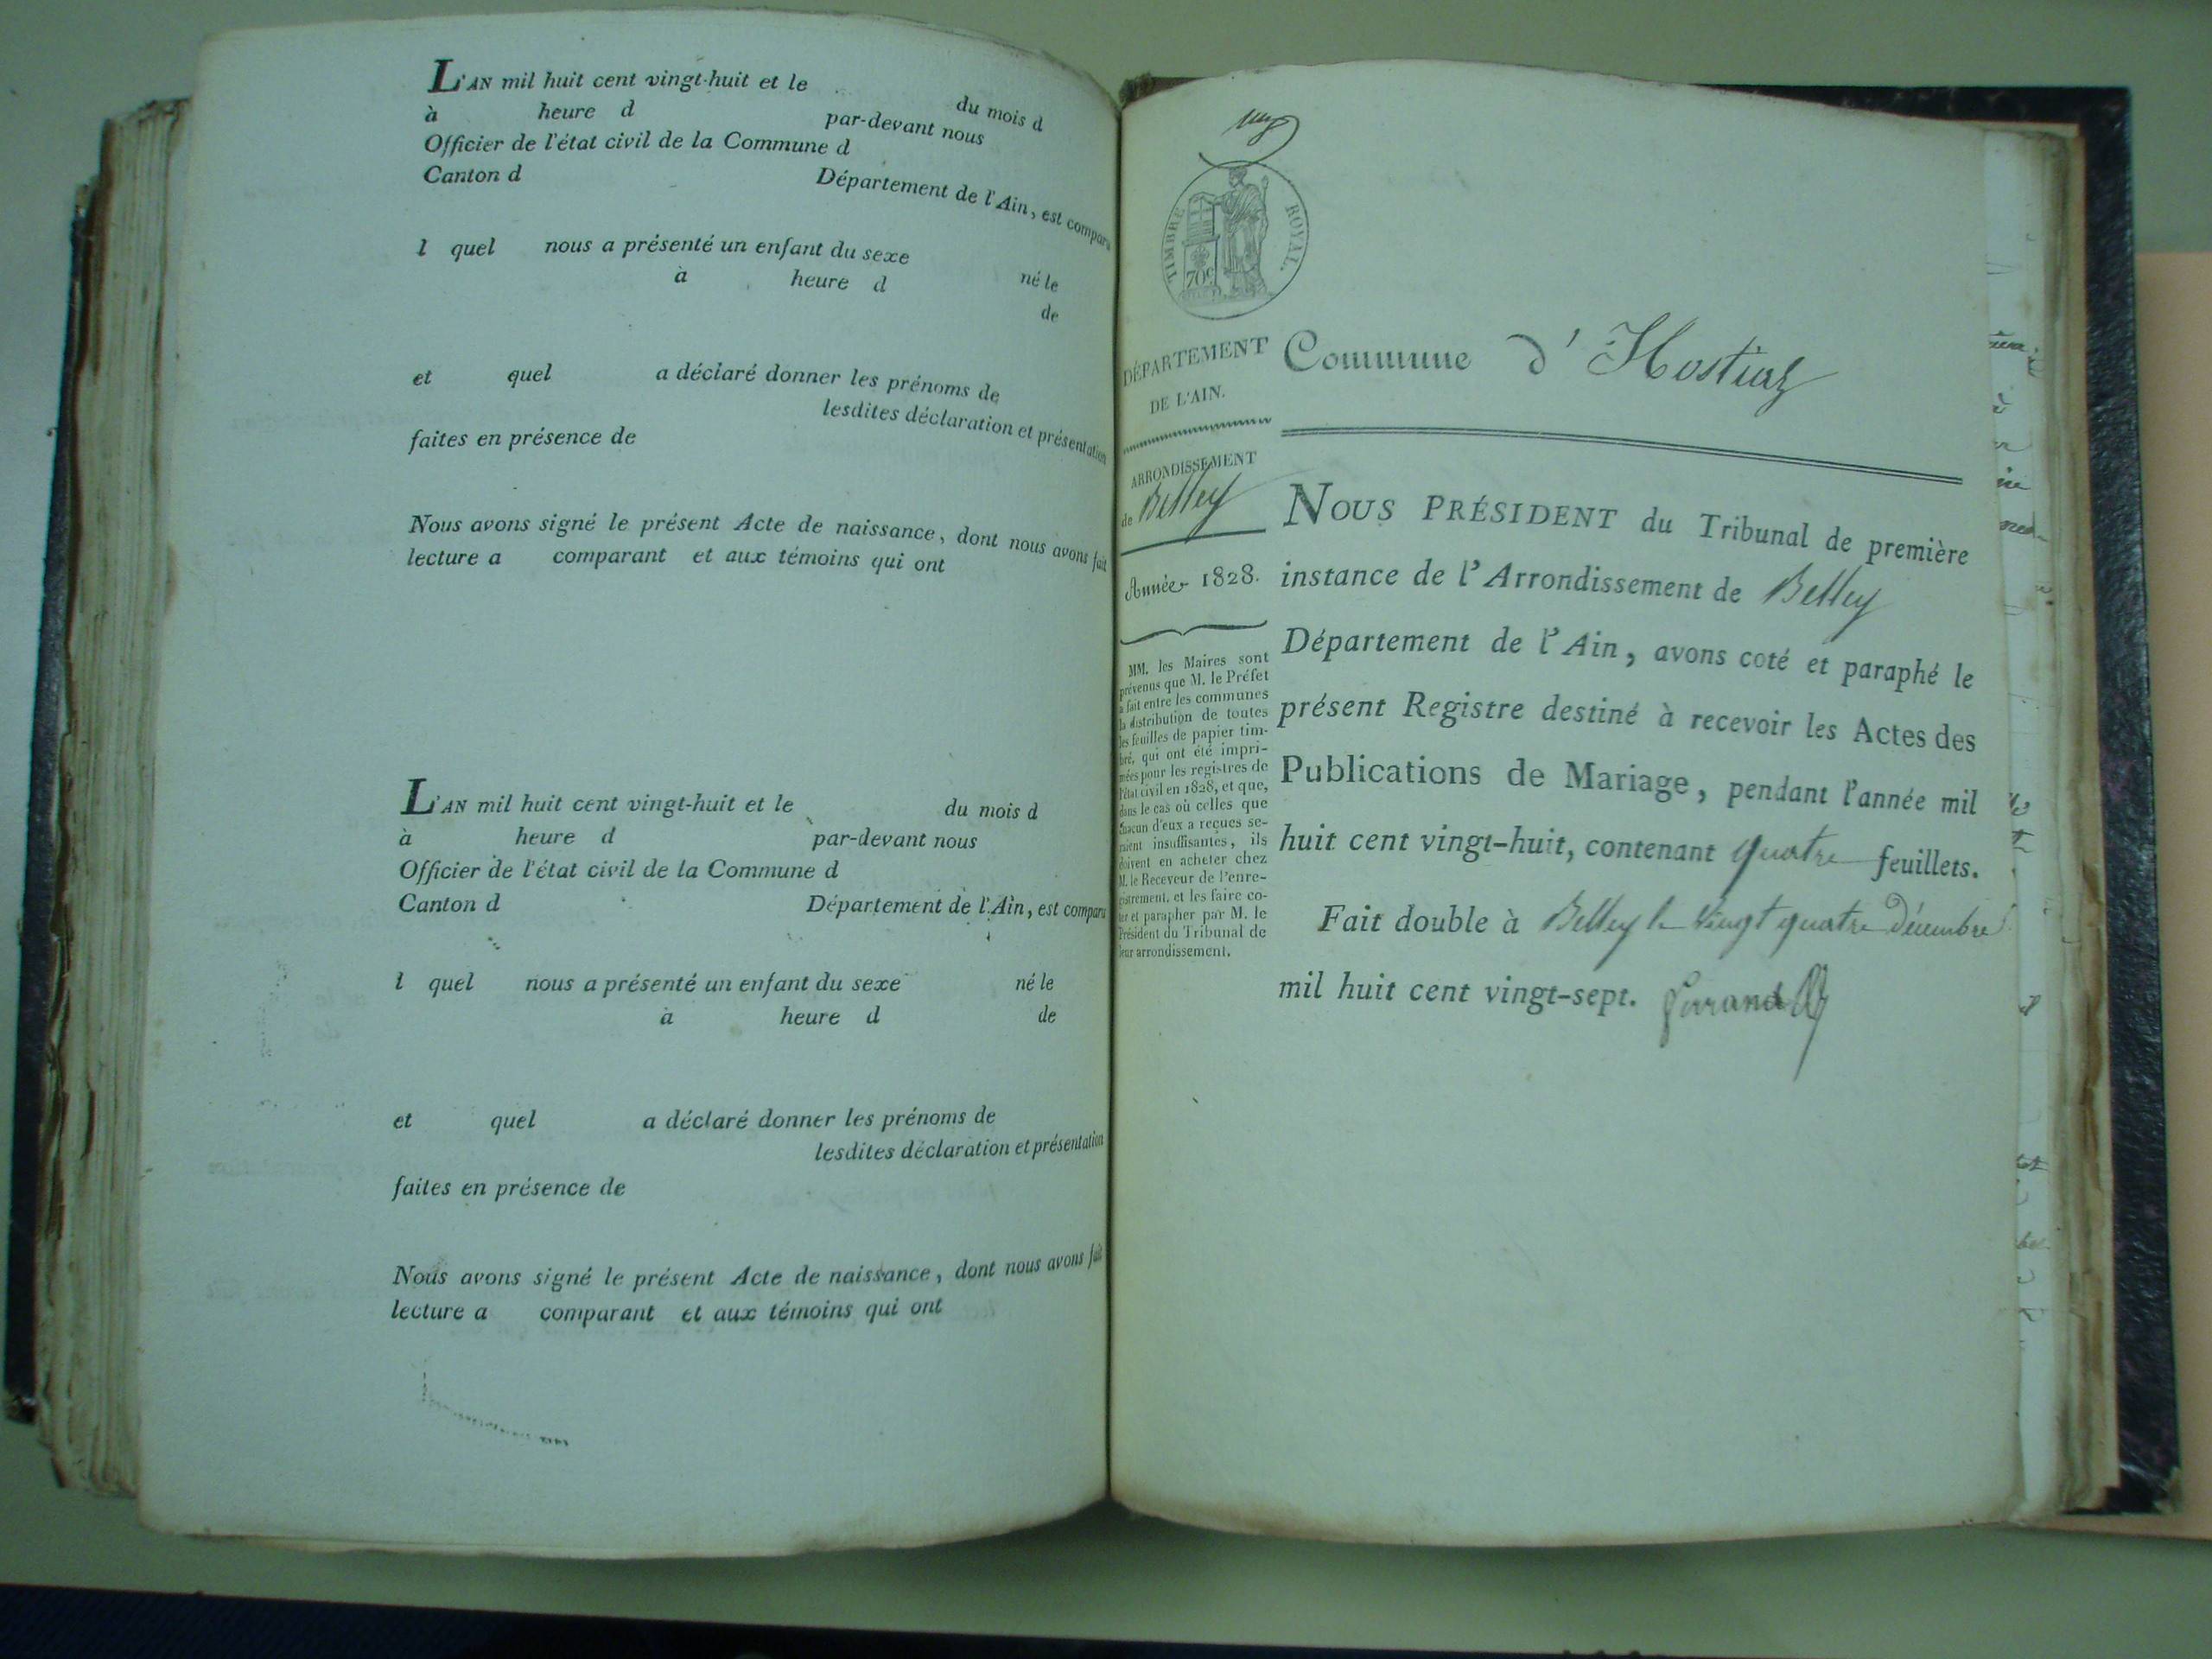 L'AN mil huit cent vingt-huit et le du mois d
à heure d par-devant nous
Officier de l'état civil de la Commune d
Canton d Département de l'Ain, est comparu
l quel nous a présenté un enfant du sexe né le
à heure d de
et quel a déclaré donner les prénoms de
lesdites déclaration et présentation
faites en présence de
Nous avons signé le présent Acte de naissance, dont nous avons fait
lecture a comparant et aux témoins qui ont
L'AN mil huit cent vingt-huit et le du mois d
à heure d par-devant nous
Officier de l'état civil de la Commune d
Canton d Département de l'Ain, est comparu
l quel nous a présenté un enfant du sexe né le
à heure d de
et quel a déclaré donner les prénoms de
lesdites déclaration et présentation
faites en présence de
Nous avons signé le présent Acte de naissance, dont nous avons fait
lecture a comparant et aux témoins qui ont
TIMBRE ROYAL.
70c
DÉPARTEMENT
DE L'AIN.
ARRONDISSEMENT
de Belley
Année 1828.
MM. les Maires sont
prévenus que M. le Préfet
a fait entre les communes
la distribution de toutes
les feuilles de papier tim-
bré, qui ont été impri-
mées pour les registres de
l'état civil en 1828, et que,
dans le cas où celles que
chacun d'eux a reçues se-
raient insuffisantes, ils
doivent en acheter chez
M. le Receveur de l'enre-
gistrement, et les faire co-
ter et parapher par M. le
Président du Tribunal de
leur arrondissement.
Commune d'Hostiaz
NOUS PRÉSIDENT du Tribunal de première
instance de l'Arrondissement de Belley
Département de l'Ain, avons coté et paraphé le
présent Registre destiné à recevoir les Actes des
Publications de Mariage, pendant l'année mil
huit cent vingt-huit, contenant quatre feuillets.
Fait double à Belley le vingt quatre décembre
mil huit cent vingt-sept.